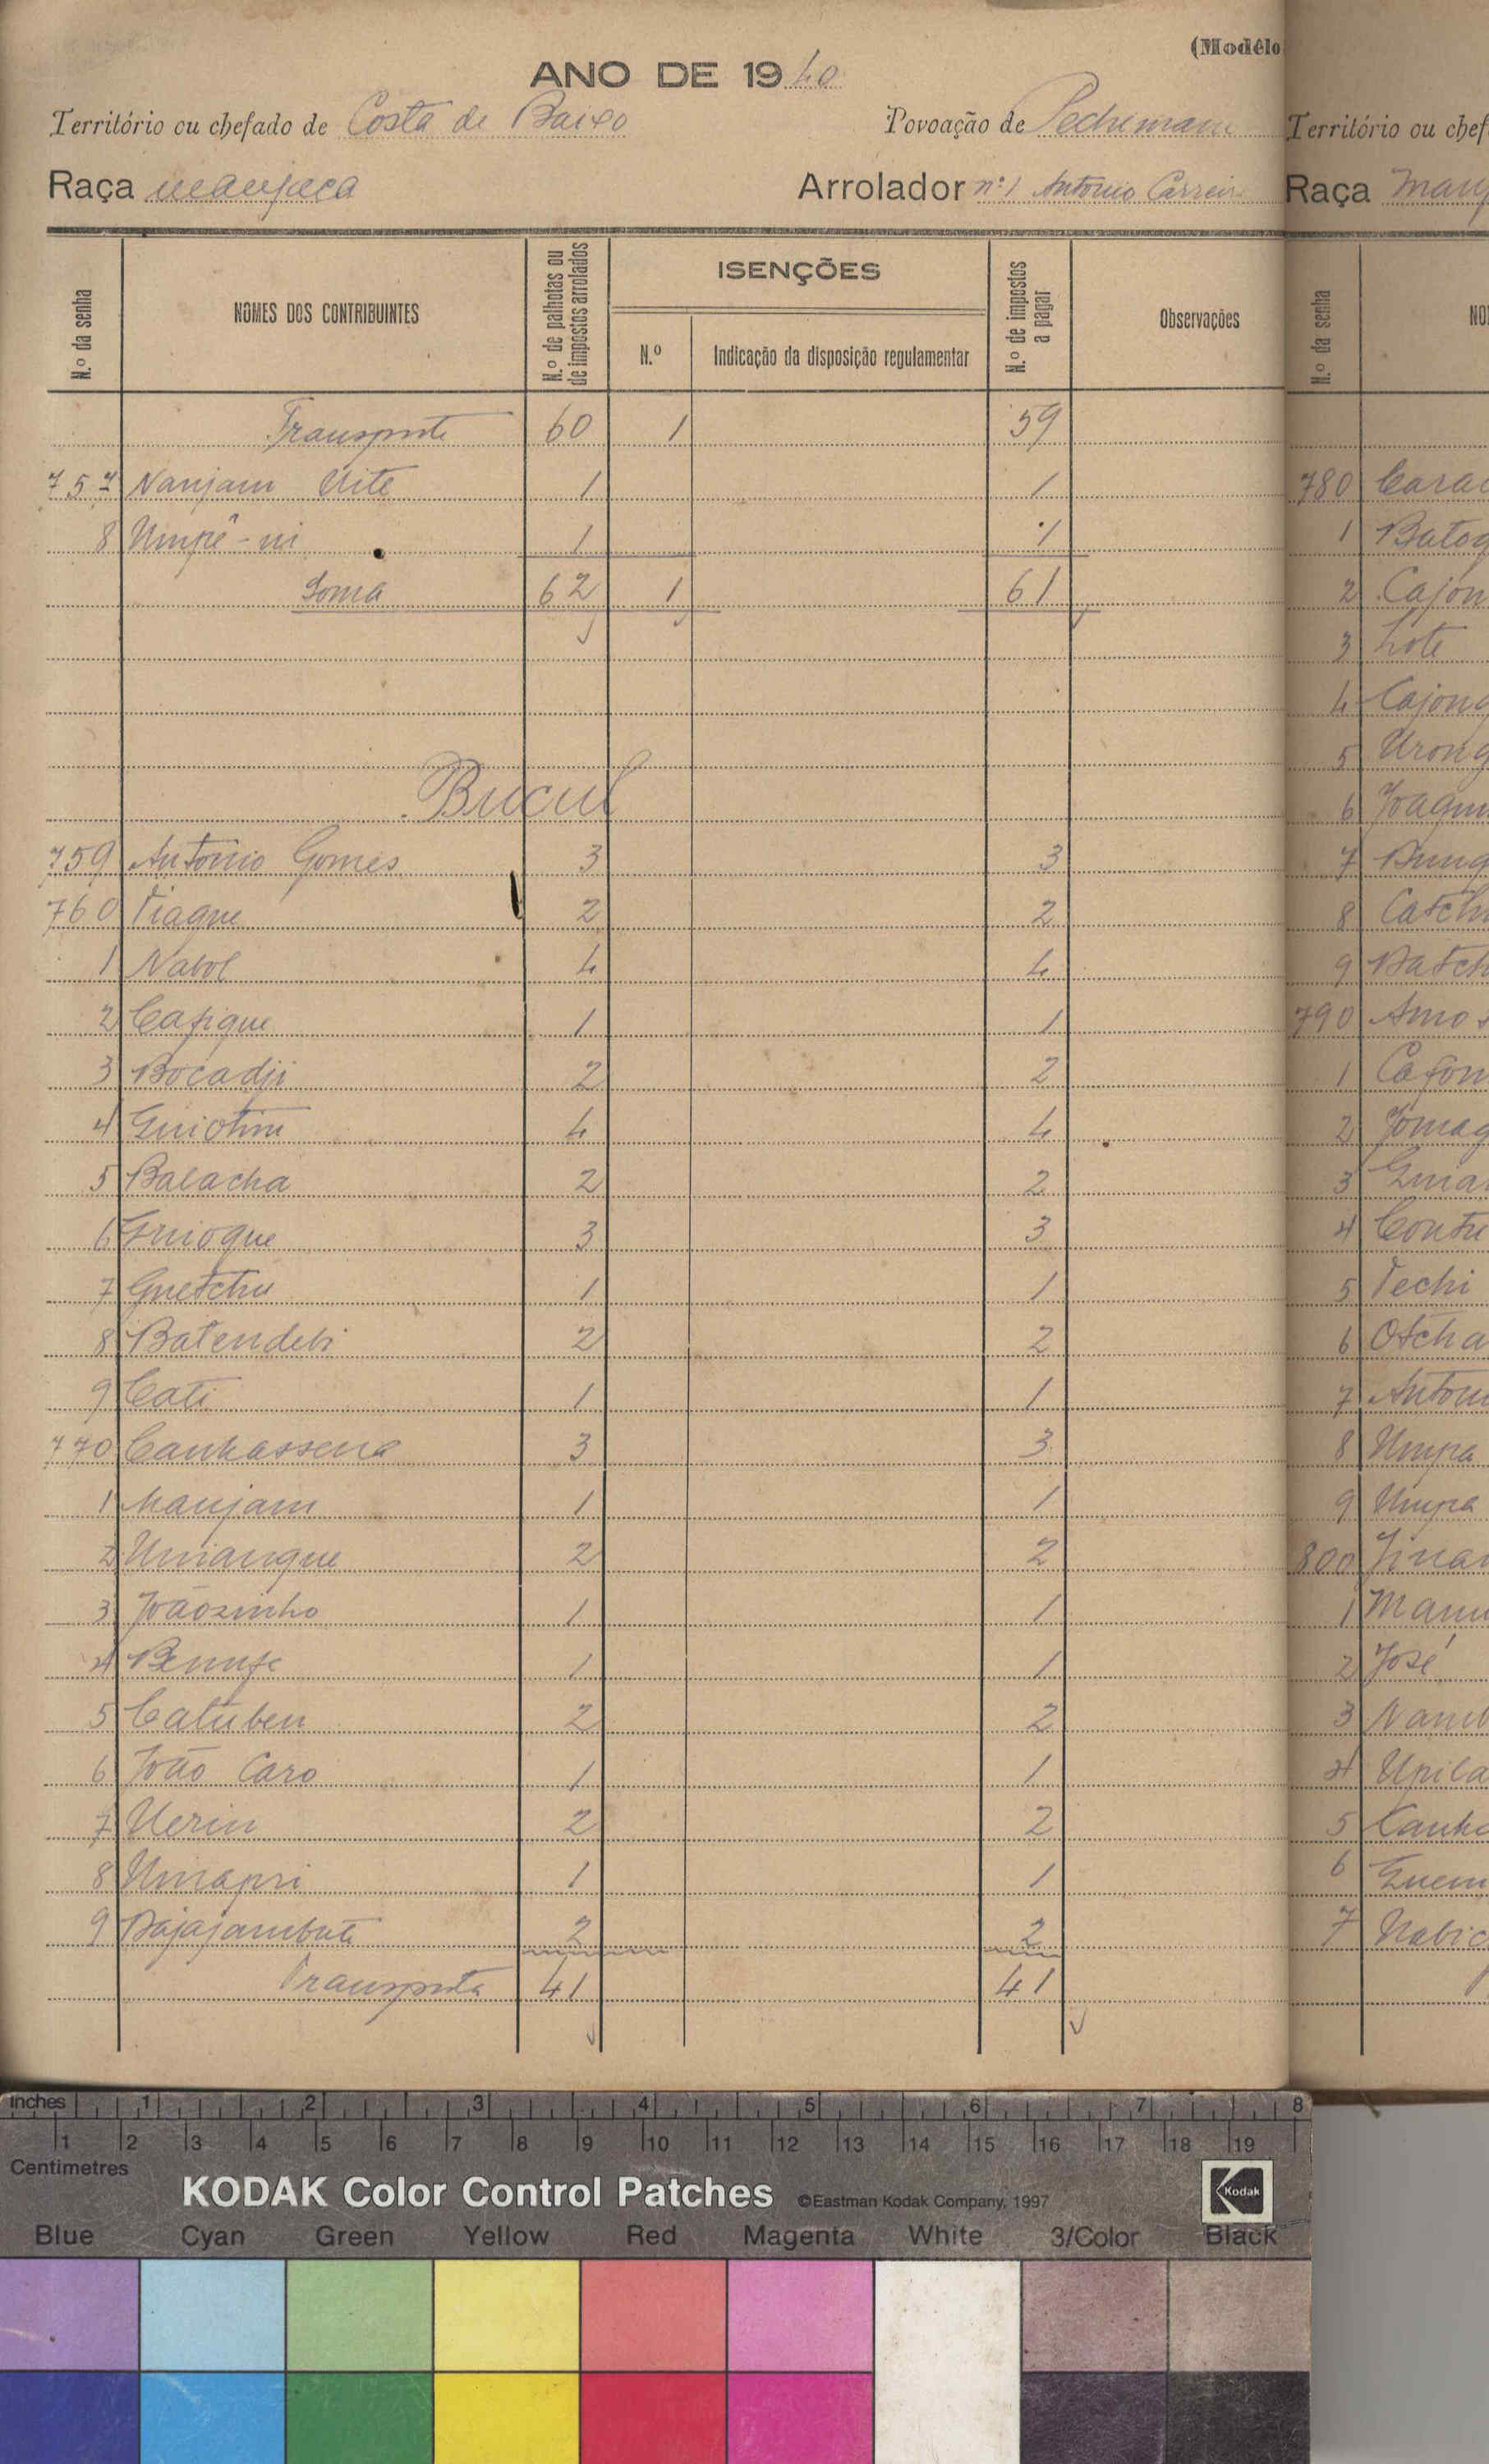 (Modêlo
ANO DE 1940
Território ou chefado de Costa de Baixo Povoação de Pechemam
Raça manjaca Arrolador nº 1 Antonio Carreir
N.º da senha NOMES DOS CONTRIBUINTES N.º de palhotas ou de impostos arrolados ISENÇÕES N.º Indicação da disposição regulamentar N.º de impostos a pagar Observações
Transporte 60 1 59
757 Nanjam Uite 1 1
8 Umpê-ni 1 1
Soma 62 1 61
Bucul
759 António Gomes 3 3
760 Tiague 2 2
1 Nabol 4 4
2 Cafique 1 1
3 Bocadji 2 2
4 Guiotim 4 4
5 Balacha 2 2
6 Guioque 3 3
7 Guetchu 1 1
8 Batendebi 2 2
9 Cati 1 1
770 Canhassena 3 3
1 Manjam 1 1
2 Umangue 2 2
3 Joãozinho 1 1
4 1 1
5 Catuben 2 2
6 João Caro 1 1
7 Uerin 2 2
8 Umapri 1 1
9 Bajajambuti 2 2
Transporte 41 41
Território ou chef
Raça Manj
N.º da senha NO
780 Cara
1 Batoq
2 Cajon
3 Lote
4 Cajong
5 Urong
6 Joaqui
7 Bung
8 Catch
9 Batch
790 Amos
1 Cafon
2 Jomag
3 Guia
4 Contu
5 Techi
6 Otcha
7 Antoni
8 Umpa
9 Umpa
800 Jina
1 Manu
2 José
3 Nam
4 Upila
5 Canh
6 Guem
7 Nabic
inches 1 2 3 4 5 6 7 8
1 2 3 4 5 6 7 8 9 10 11 12 13 14 15 16 17 18 19
Centimetres
KODAK Color Control Patches ©Eastman Kodak Company, 1997 Kodak
Blue Cyan Green Yellow Red Magenta White 3/Color Black